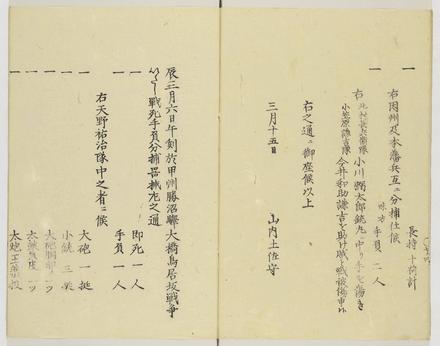 一 長持 十荷計
右因州及本藩兵互ニ分捕仕候
一 味方 手負 二人
右 北村長兵衛隊 小川潤太郎銃丸ニ中り手ヲ傷き
小笠原謙吉隊 今井和助謙吉を助け賊と戦被傷申候
右之通ニ御座候以上
三月十五日 山内土佐守
辰三月六日午刻於甲州勝沼驛大橋鳥居坂戦争
いたし戦死手負分捕器械左之通
一 即死 一人
一 手負 一人
右天野祐治隊中之者ニ候
一 大砲 一挺
一 小銃 三挺
一 大砲胴乱 一ツ
一 一ツ
一 大砲